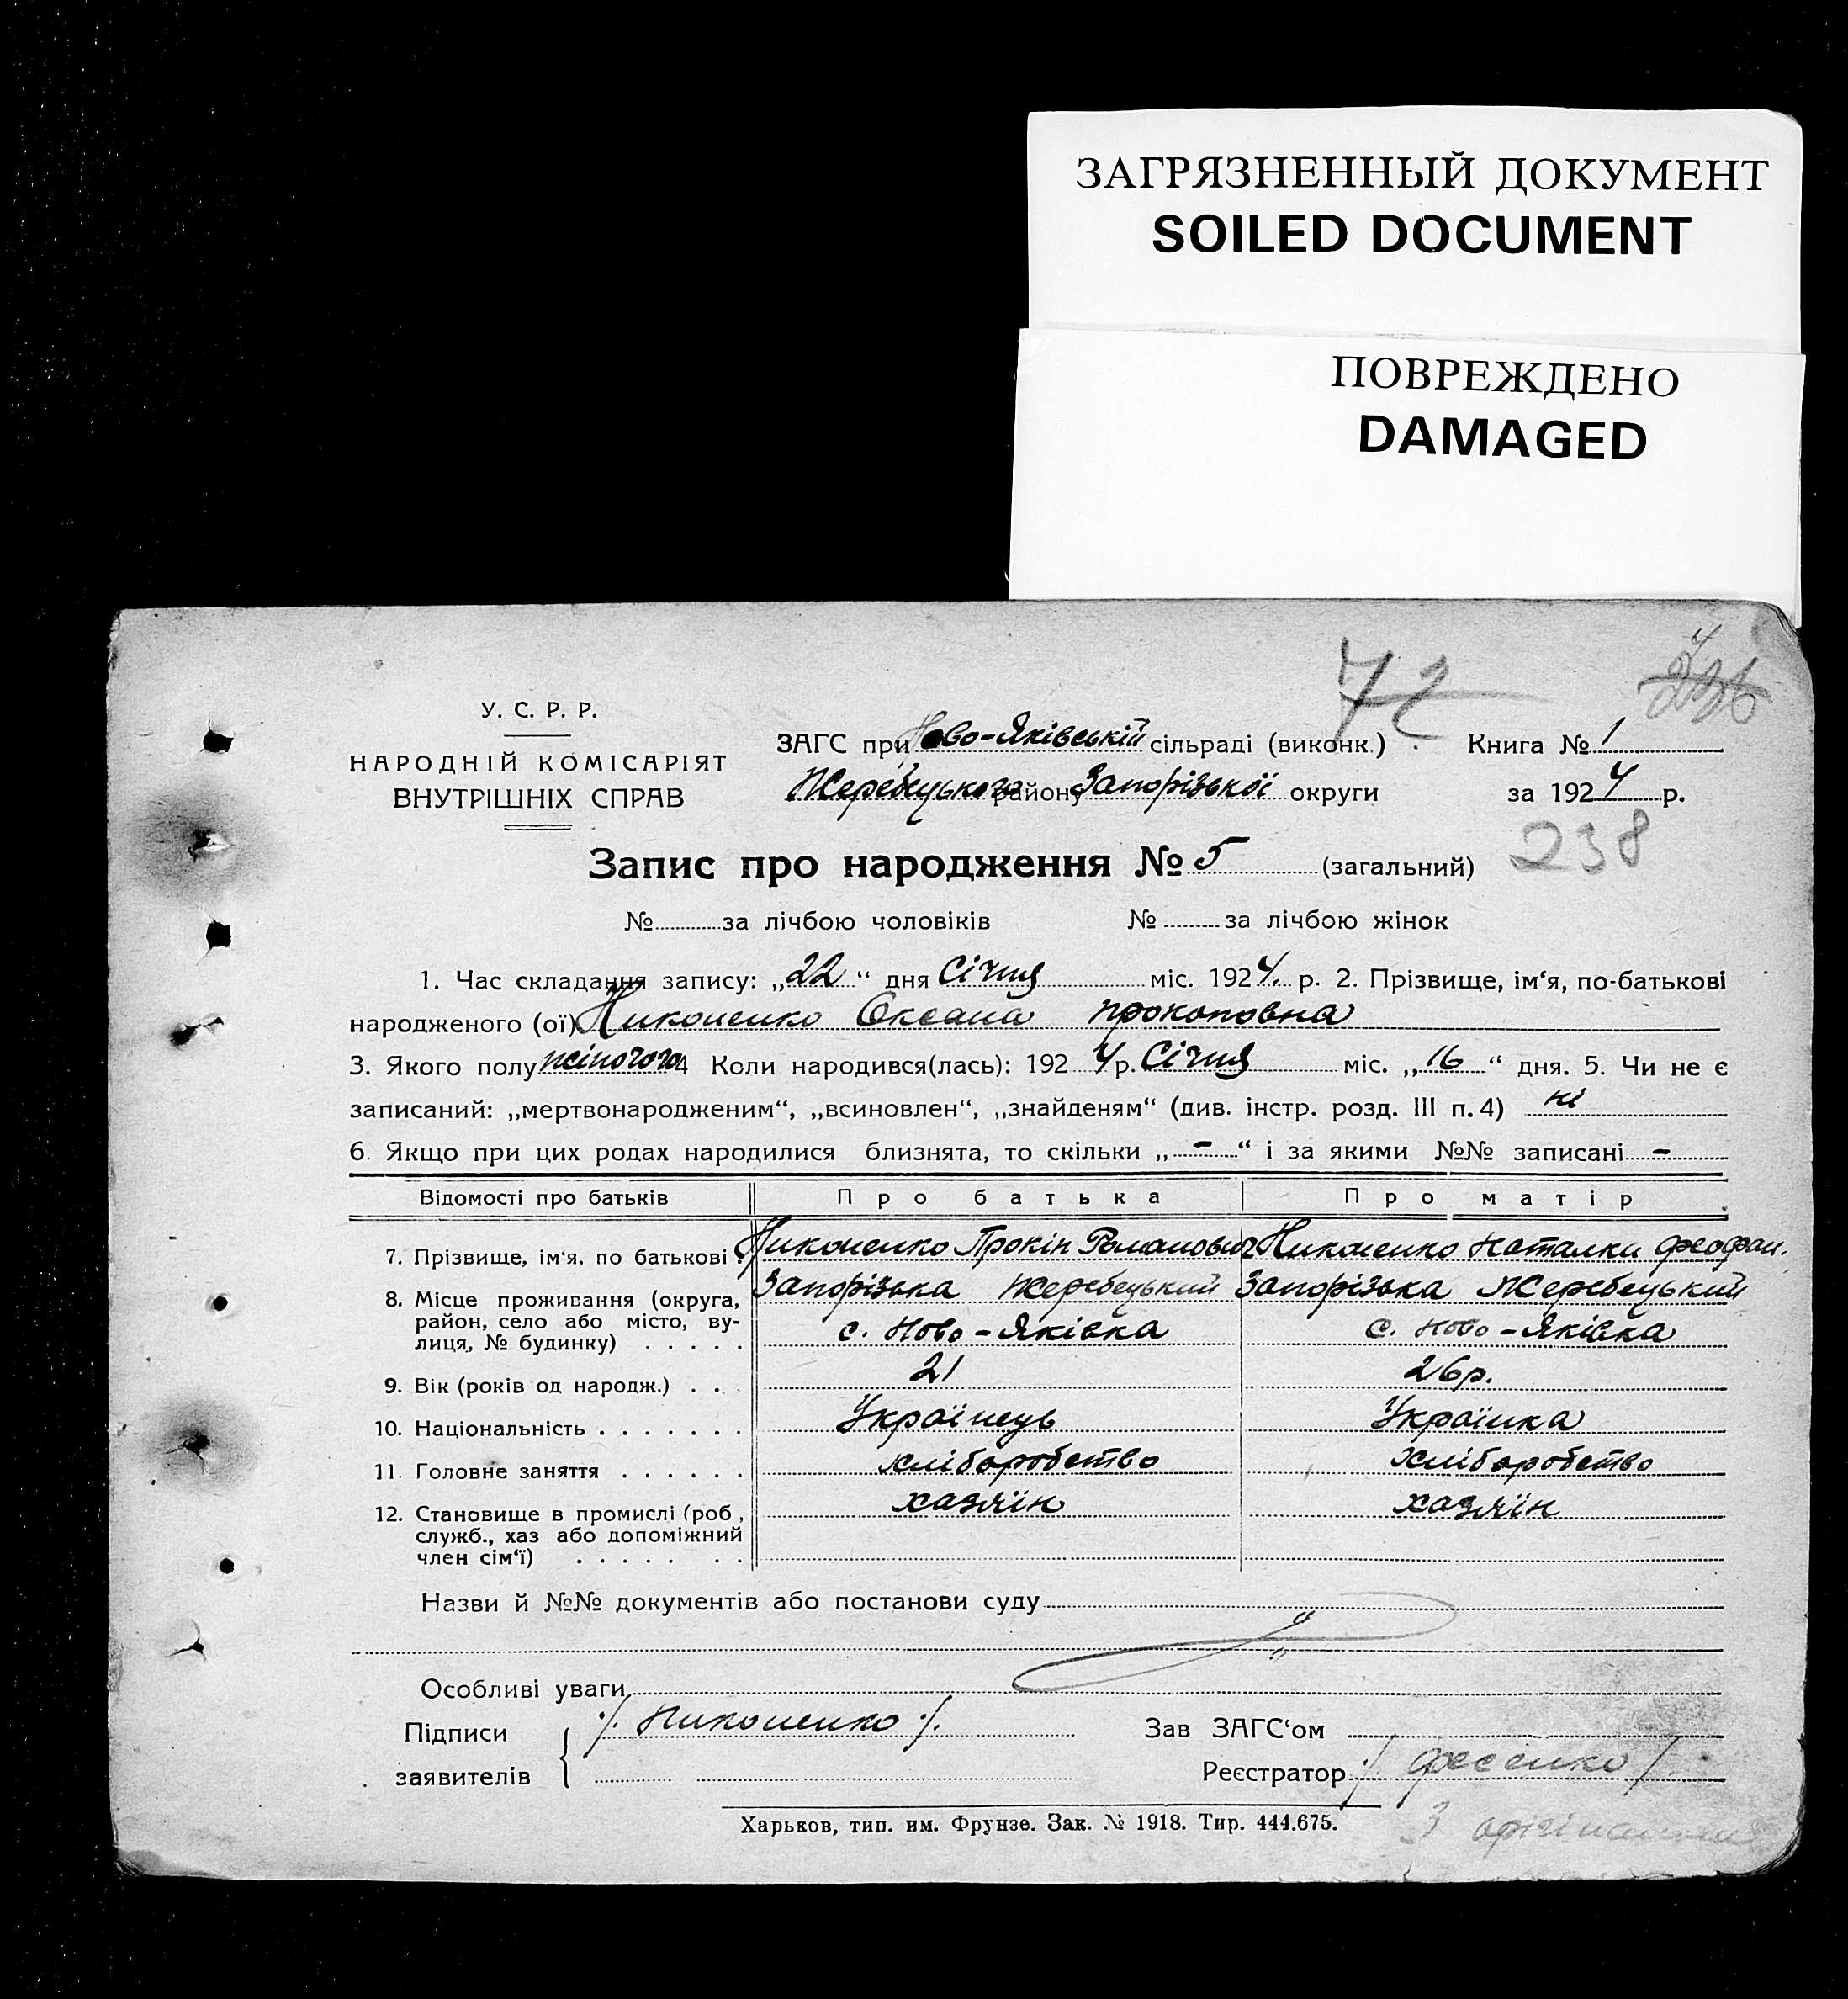 ЗАГРЯЗНЕННЫЙ ДОКУМЕНТ
SOILED DOCUMENT
ПОВРЕЖДЕНО
DAMAGED
72
У. С. Р. Р.
НАРОДНІЙ КОМІСАРІЯТ
ВНУТРІШНІХ СПРАВ
ЗАГС при Ново-Яківській сільраді (виконк.) Книга № 1
Жеребецького району Запорізької округи за 1924 р.
238
Запис про народження № 5 (загальний)
№ за лічбою чоловіків № за лічбою жінок
1. Час складання запису: „22“ дня Січня міс. 1924. р. 2. Прізвище, ім‘я, по-батькові
народженого (ої) Никоненко Оксана Прокоповна
3. Якого полу жіночого 4 Коли народився(лась): 1924 р. Січня міс. „16“ дня. 5. Чи не є
записаний: „мертвонародженим“, „всиновлен“, „знайденям“ (див. інстр. розд. III п. 4) ні
6. Якщо при цих родах народилися близнята, то скільки „-“ і за якими №№ записані -
Відомості про батьків Про батька Про матір
7. Прізвище, ім‘я, по батькові Никоненко Прокіп Романович Никоненко Наталки Феофан.
8. Місце проживання (округа, район, село або місто, вулиця, № будинку) Запорізька Жеребецький Запорізька Жеребецький
с. Ново-Яківка с. Ново-Яківка
9. Вік (років од народж.) 21 26р.
10. Національність Українець Українка
11. Головне заняття хліборобство хліборобство
12. Становище в промислі (роб, служб., хаз або допоміжний член сім‘ї) хазяїн хазяїн
Назви й №№ документів або постанови суду
Особливі уваги
Підписи заявителів /. Никоненко ./
Зав ЗАГС‘ом
Реєстратор / Фесенко /
Харьков, тип. им. Фрунзе. Зак. № 1918. Тир. 444.675.
З оригіналом